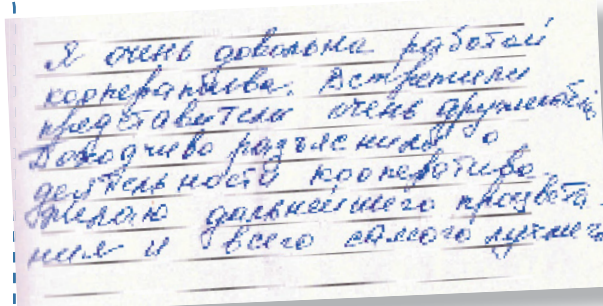 Я очень довольна работой
кооператива. Встретили
представители очень дружелюбно,
Доходчиво разъяснили о
деятельности кооператива
Желаю дальнейшего процвета-
ния и всего самого лучшего